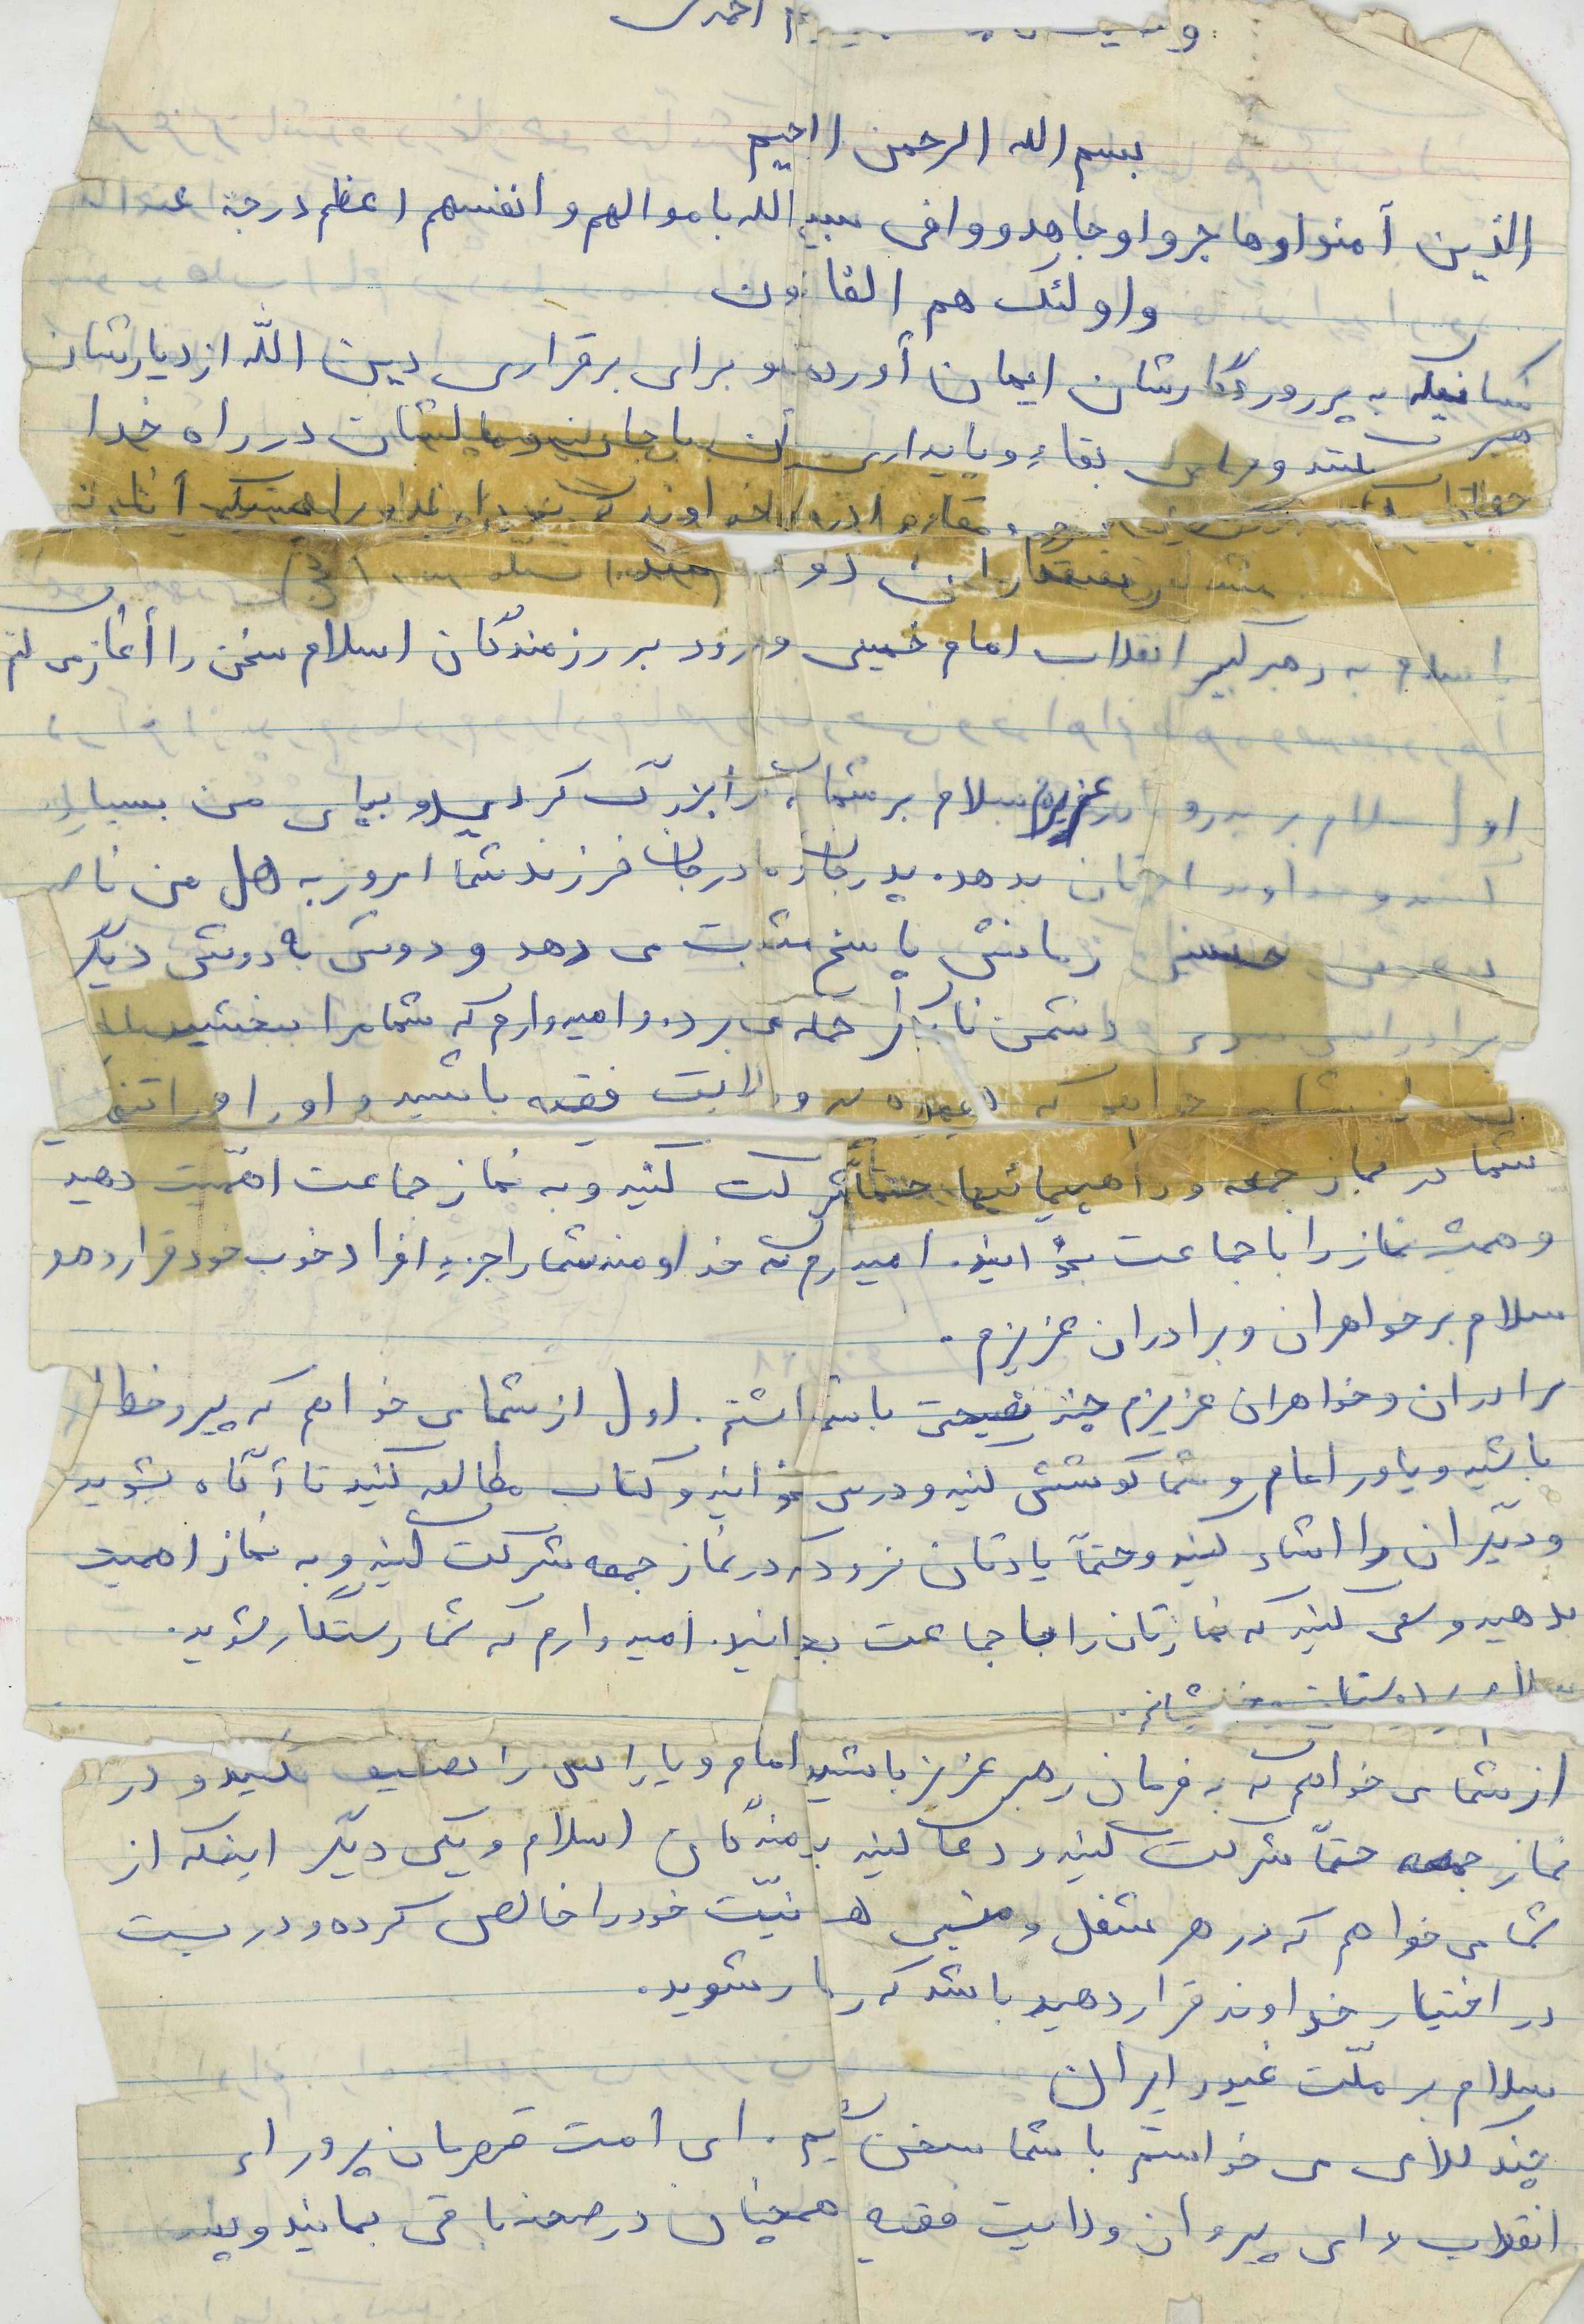 احمدی
بسم الله الرحمن الرحیم
الذین آمنوا و هاجروا و جاهدووا فی سبیل الله باموالهم و انفسهم اعظم درجة عندالله
و اولئک هم الفائزون
کسانیکه به پروردگارشان ایمان آورده و برای برقراری دین اللّه از دیارشان
هجرت کنند و برای بقاء و پایداری آن با جان و مالشان در راه خدا
مقام
این دو
با سلام به رهبر کبیر انقلاب امام خمینی و درود بر رزمندگان اسلام سخن را آغاز می کنم
اول سلام بر پدر و مادر عزیزم سلام بر شما که مرا بزرگ کردید و بپای من بسیار
خداوند اجرتان بدهد. پدر جان و مادر جان فرزند شما امروز به هل من ناصر
حسین زمانش پاسخ مثبت می دهد و دوش به دوش دیگر
برادرانش بسوی دشمن حمله می برد. و امیدوارم که شما مرا ببخشید
ولایت فقیه باشید و او را
شما در نماز جمعه و راهپیمائیها حتماً شرکت کنید و به نماز جماعت اهمّیت دهید
و همیشه نماز را با جماعت بخوانید. امیدوارم که خداوند شما را جزء افراد خوب خود قرار دهد
سلام بر خواهران و برادران عزیزم.
برادران و خواهران عزیزم چند نصیحت با شما داشتم. اول از شما می خواهم که پیرو خط امام
باشید و یاور امام و شما کوشش کنید و درس بخوانید و کتاب مطالعه کنید تا آگاه بشوید
و دیگران را ارشاد کنید و حتماً یادتان نرود که در نماز جمعه شرکت کنید و به نماز اهمیت
بدهید و سعی کنید که نمازتان را با جماعت بخوانید. امیدوارم که شما رستگار شوید.
سلام بر دوستان و خویشانم.
از شما می خواهم که به فرمان رهبر عزیز باشید امام و یارانش را تضعیف نکنید و در
نماز جمعه حتماً شرکت کنید و دعا کنید به رزمندگان اسلام و یکی دیگر اینکه از
شما می خواهم که در هر شغل و منصبی هستید نیّت خود را خالص کرده و دربست
در اختیار خداوند قرار دهید باشد که رستگار شوید.
سلام بر ملّت غیور ایران
چند کلامی می خواستم با شما سخن گویم. ای امت قهرمان پرور ای
انقلاب و ای پیروان ولایت فقیه همچنان در صحنه باقی بمانید و